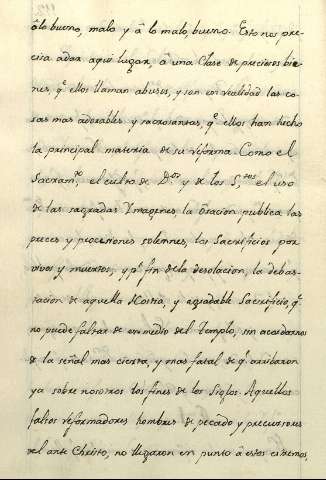 â lo bueno, malo y â lo malo, bueno. Esto nos pre-
cisa â dar aqui lugar, â una Clase de preciosos bie-
nes, q.e ellos llaman abusos, y son en realidad las co-
sas mas adorables y sacrosantas, q.e ellos han hecho
la principal materia de su reforma. Como el
Sacram.to el culto de D.os y de los S.tos el uso
de las sagradas Ymagenes la Oracion publica las
preces y procesiones solemnes, los Sacrificios por
vivos y muertos, y p.r fin de la desolacion, la debas-
tacion de aquella Hostia, y agradable Sacrificio, q.e
no puede faltar de en medio del Templo, sin acordarnos
de la señal mas cierta, y mas fatal de q.e arribaron
ya sobre nosotros los fines de los Siglos. Aquellos
falsos reformadores hombres de pecado y precursores
del ante Christo, no llegaron en punto â estos estremos,